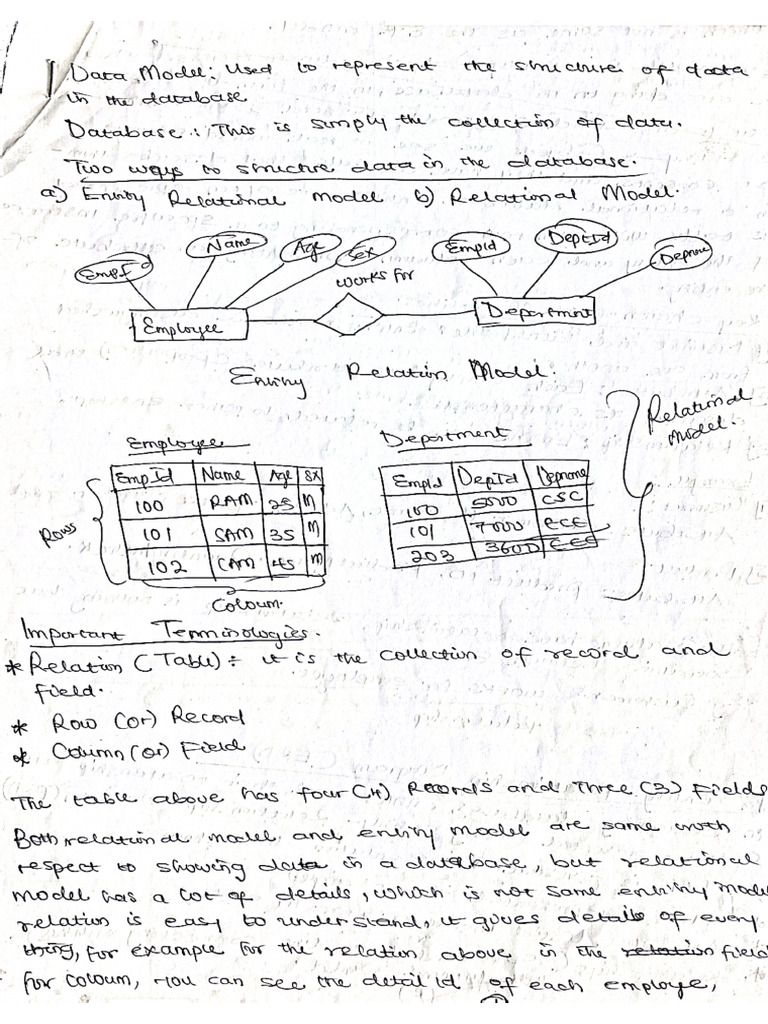 Data Model: Used to represent the structure of data
in the database
Database: This is simply the collection of data.
Two ways to structure data in the database.
a) Entity Relational model b) Relational Model.
EmpId Name Age Sex EmpId DeptId Depname
works for
Employee Department
Entity Relation Model.
Relational
Model.
Employee Department
EmpId Name Age SX EmpId DepId Depname
100 RAM 25 M 100 5000 CSC
101 SAM 35 M 101 7000 ECE
102 CAM 45 M 203 3600 EEE
Rows
Coloum.
Important Terminologies.
* Relation (Table) ÷ it is the collection of record and
field.
* Row (or) Record
* Column (or) Field
The table above has four (4) Records and Three (3) Fields
Both relational model and entity model are same with
respect to showing data in a database, but relational
model has a lot of details, which is not same entity model
relation is easy to understand, it gives details of every
thing, for example for the relation above in the relation field
for coloum, you can see the detail id of each employee,